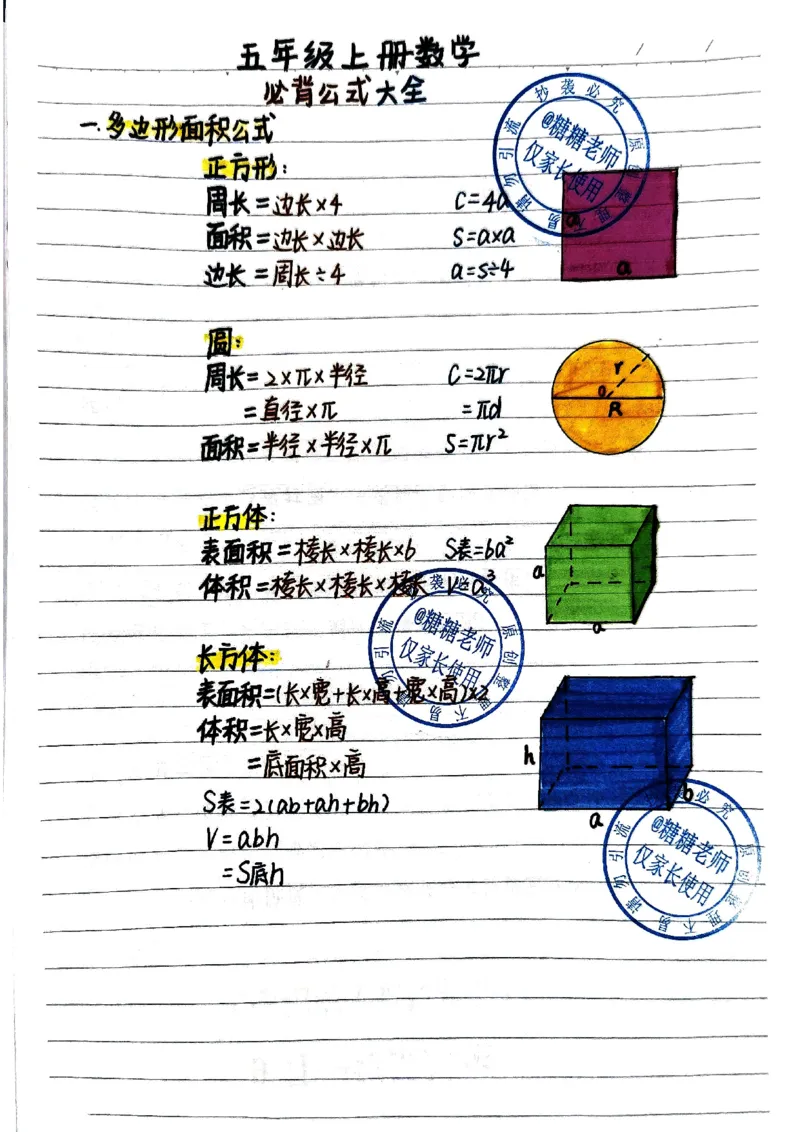 五年级上册数学
必背公式大全
一.多边形面积公式
正方形:
周长=边长×4 C=4a
面积=边长×边长 S=a×a
边长=周长÷4 a=s÷4
a
a
圆:
周长=2×π×半径 C=2πr
=直径×π =πd
面积=半径×半径×π S=πr²
r
o
R
正方体:
表面积=棱长×棱长×6 S表=6a²
体积=棱长×棱长×棱长 V=a³
a
a
长方体:
表面积=(长×宽+长×高+宽×高)×2
体积=长×宽×高
=底面积×高
S表=2(ab+ah+bh)
V=abh
=S底h
h
a
b
抄袭必究 原创整理不易 请勿引流
@糖糖老师
仅家长使用
袭必究 原创整理不易 请勿引流
@糖糖老师
仅家长使用
必究 原创整理不易 请勿引流
@糖糖老师
仅家长使用